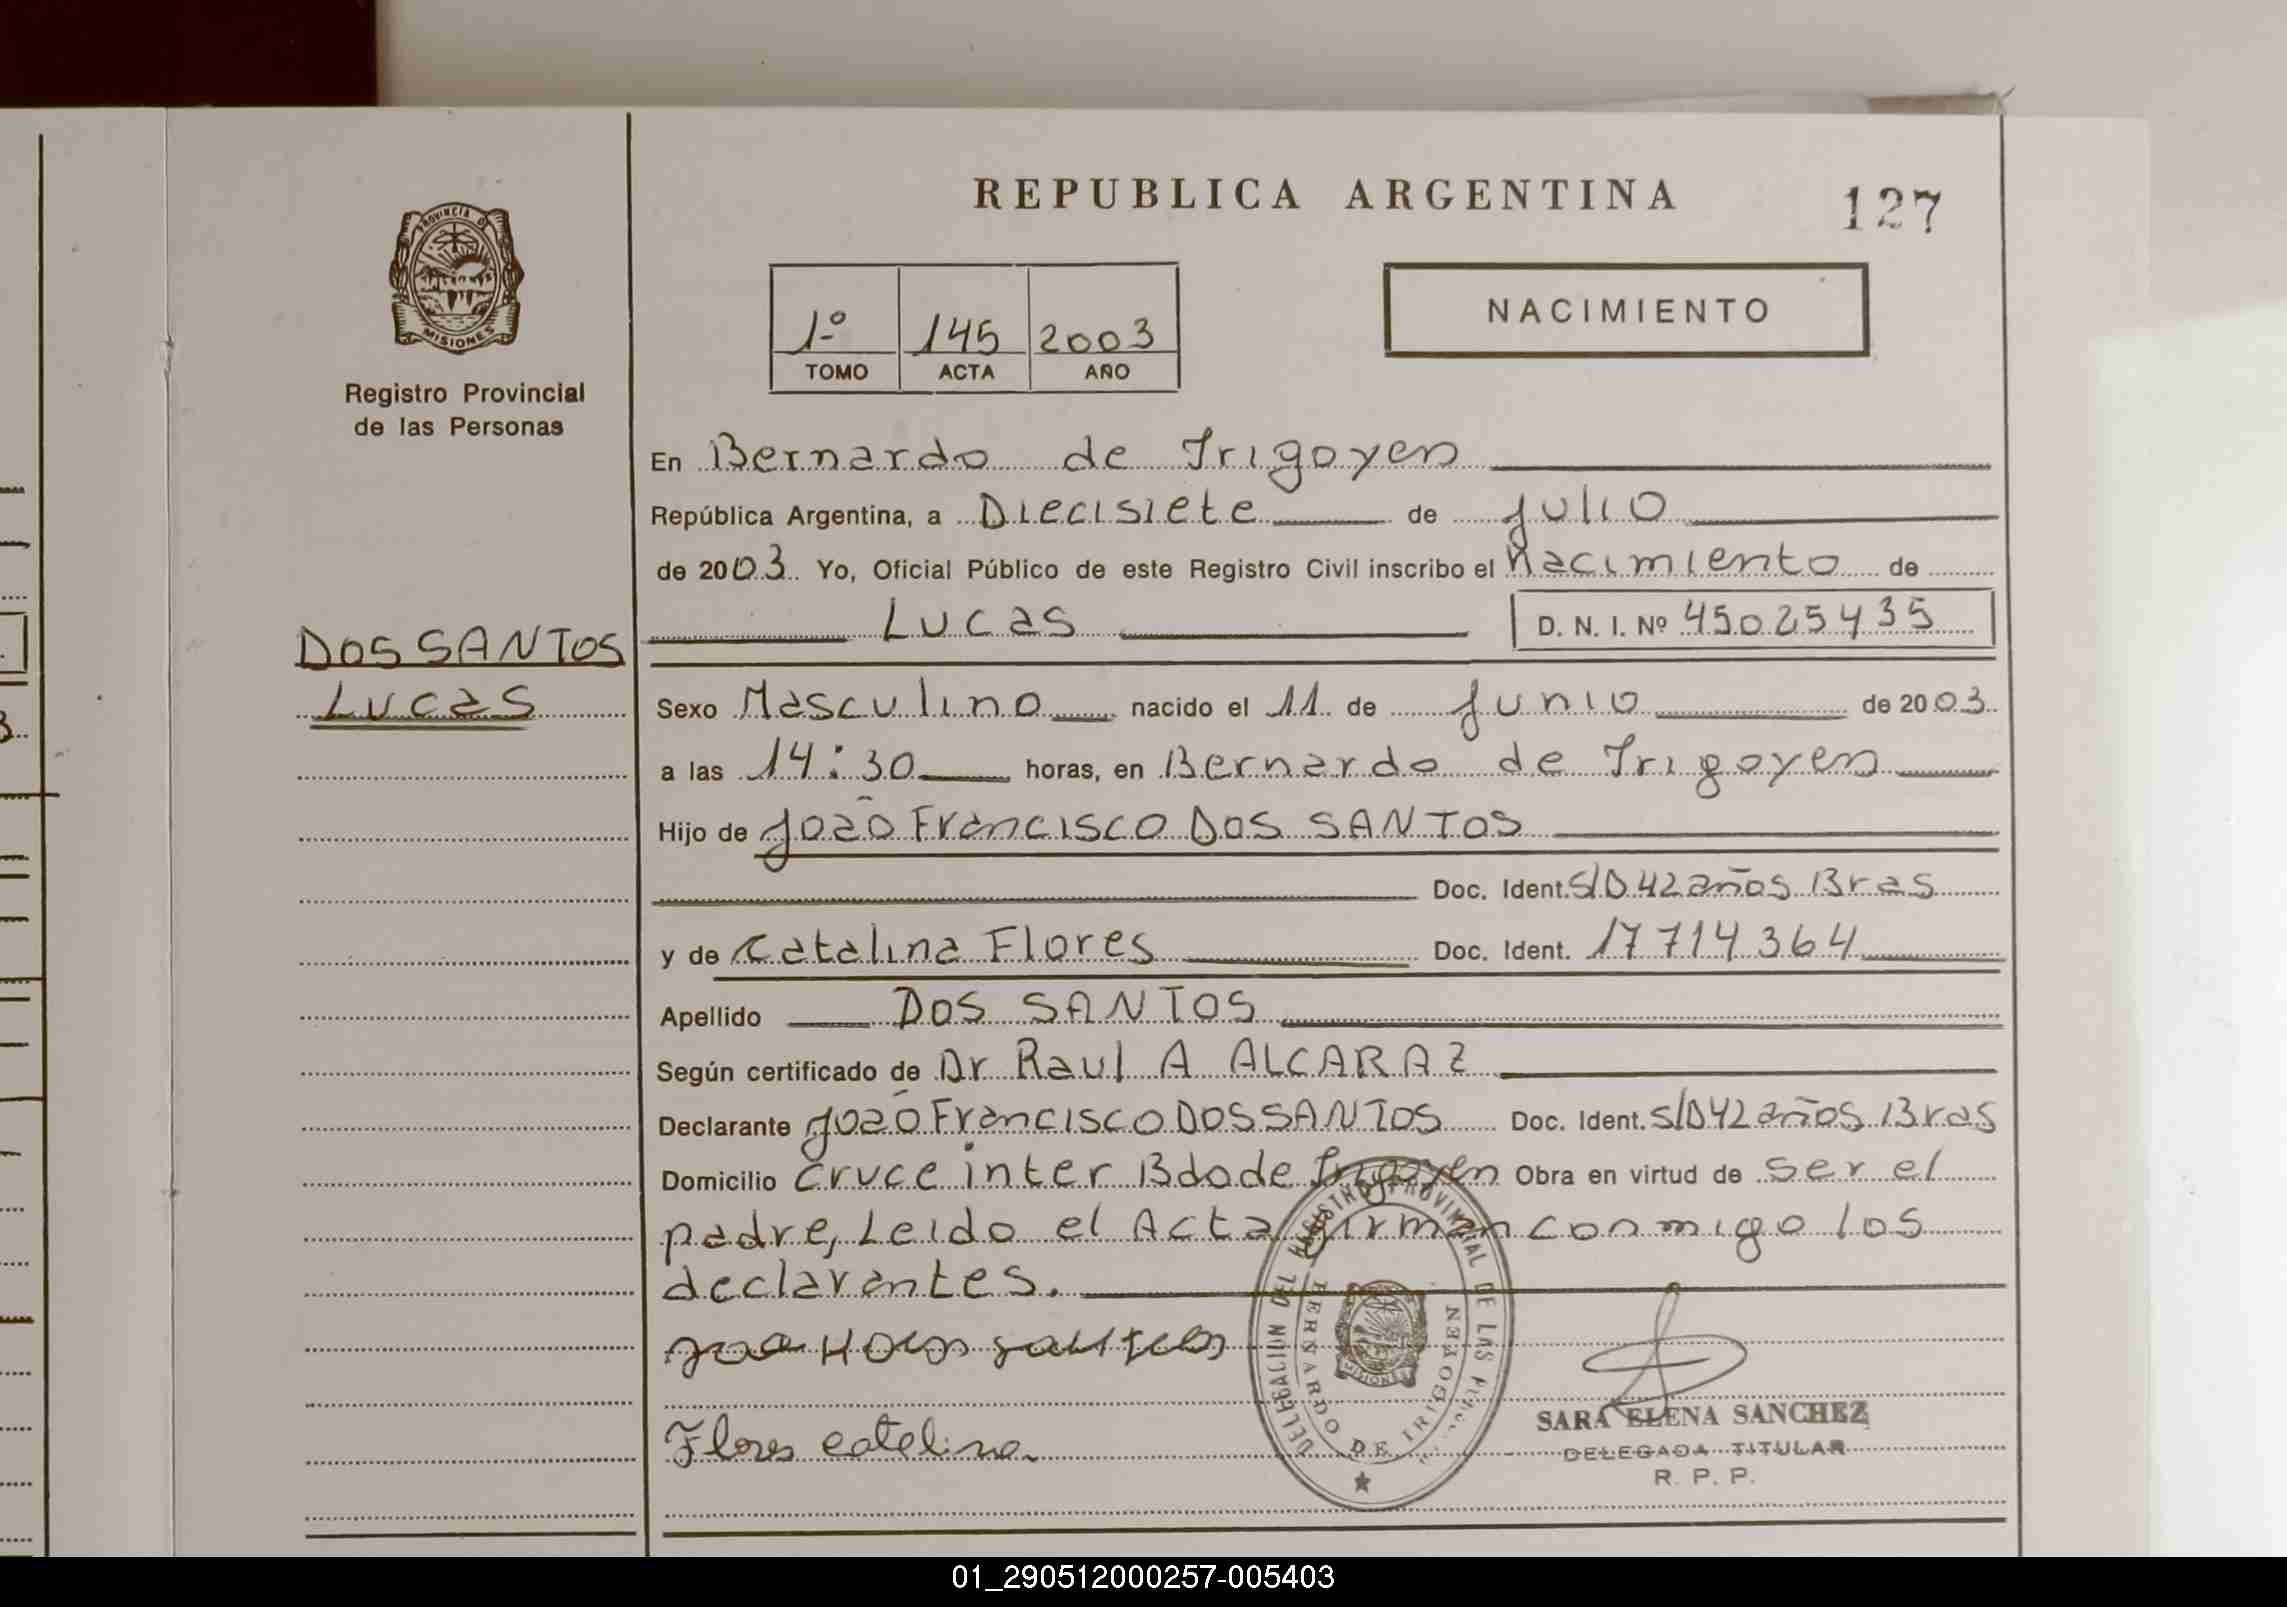 REPUBLICA ARGENTINA
127
PROVINCIA DE
MISIONES
Registro Provincial
de las Personas
1º 145 2003
TOMO ACTA AÑO
NACIMIENTO
En Bernardo de Irigoyen
República Argentina, a Diecisiete de julio
de 2003. Yo, Oficial Público de este Registro Civil inscribo el Nacimiento de
Lucas D. N. I. Nº 45025435
DOS SANTOS
Lucas
Sexo Masculino nacido el 11 de junio de 2003
a las 14:30 horas, en Bernardo de Irigoyen
Hijo de João Francisco DOS SANTOS
Doc. Ident. S/D 42 años Bras
y de Catalina Flores Doc. Ident. 17714364
Apellido DOS SANTOS
Según certificado de Dr Raul A ALCARAZ
Declarante João Francisco DOS SANTOS Doc. Ident. S/D 42 años Bras
Domicilio Cruce inter Bdo de Irigoyen Obra en virtud de ser el
padre, Leido el Acta firman conmigo los
declarantes.
Flores catelina
DELEGACION DEL REGISTRO PROVINCIAL DE LAS
BERNARDO DE IRIGOYEN
MISIONES
SARA ELENA SANCHEZ
DELEGADA TITULAR
R. P. P.
01_290512000257-005403